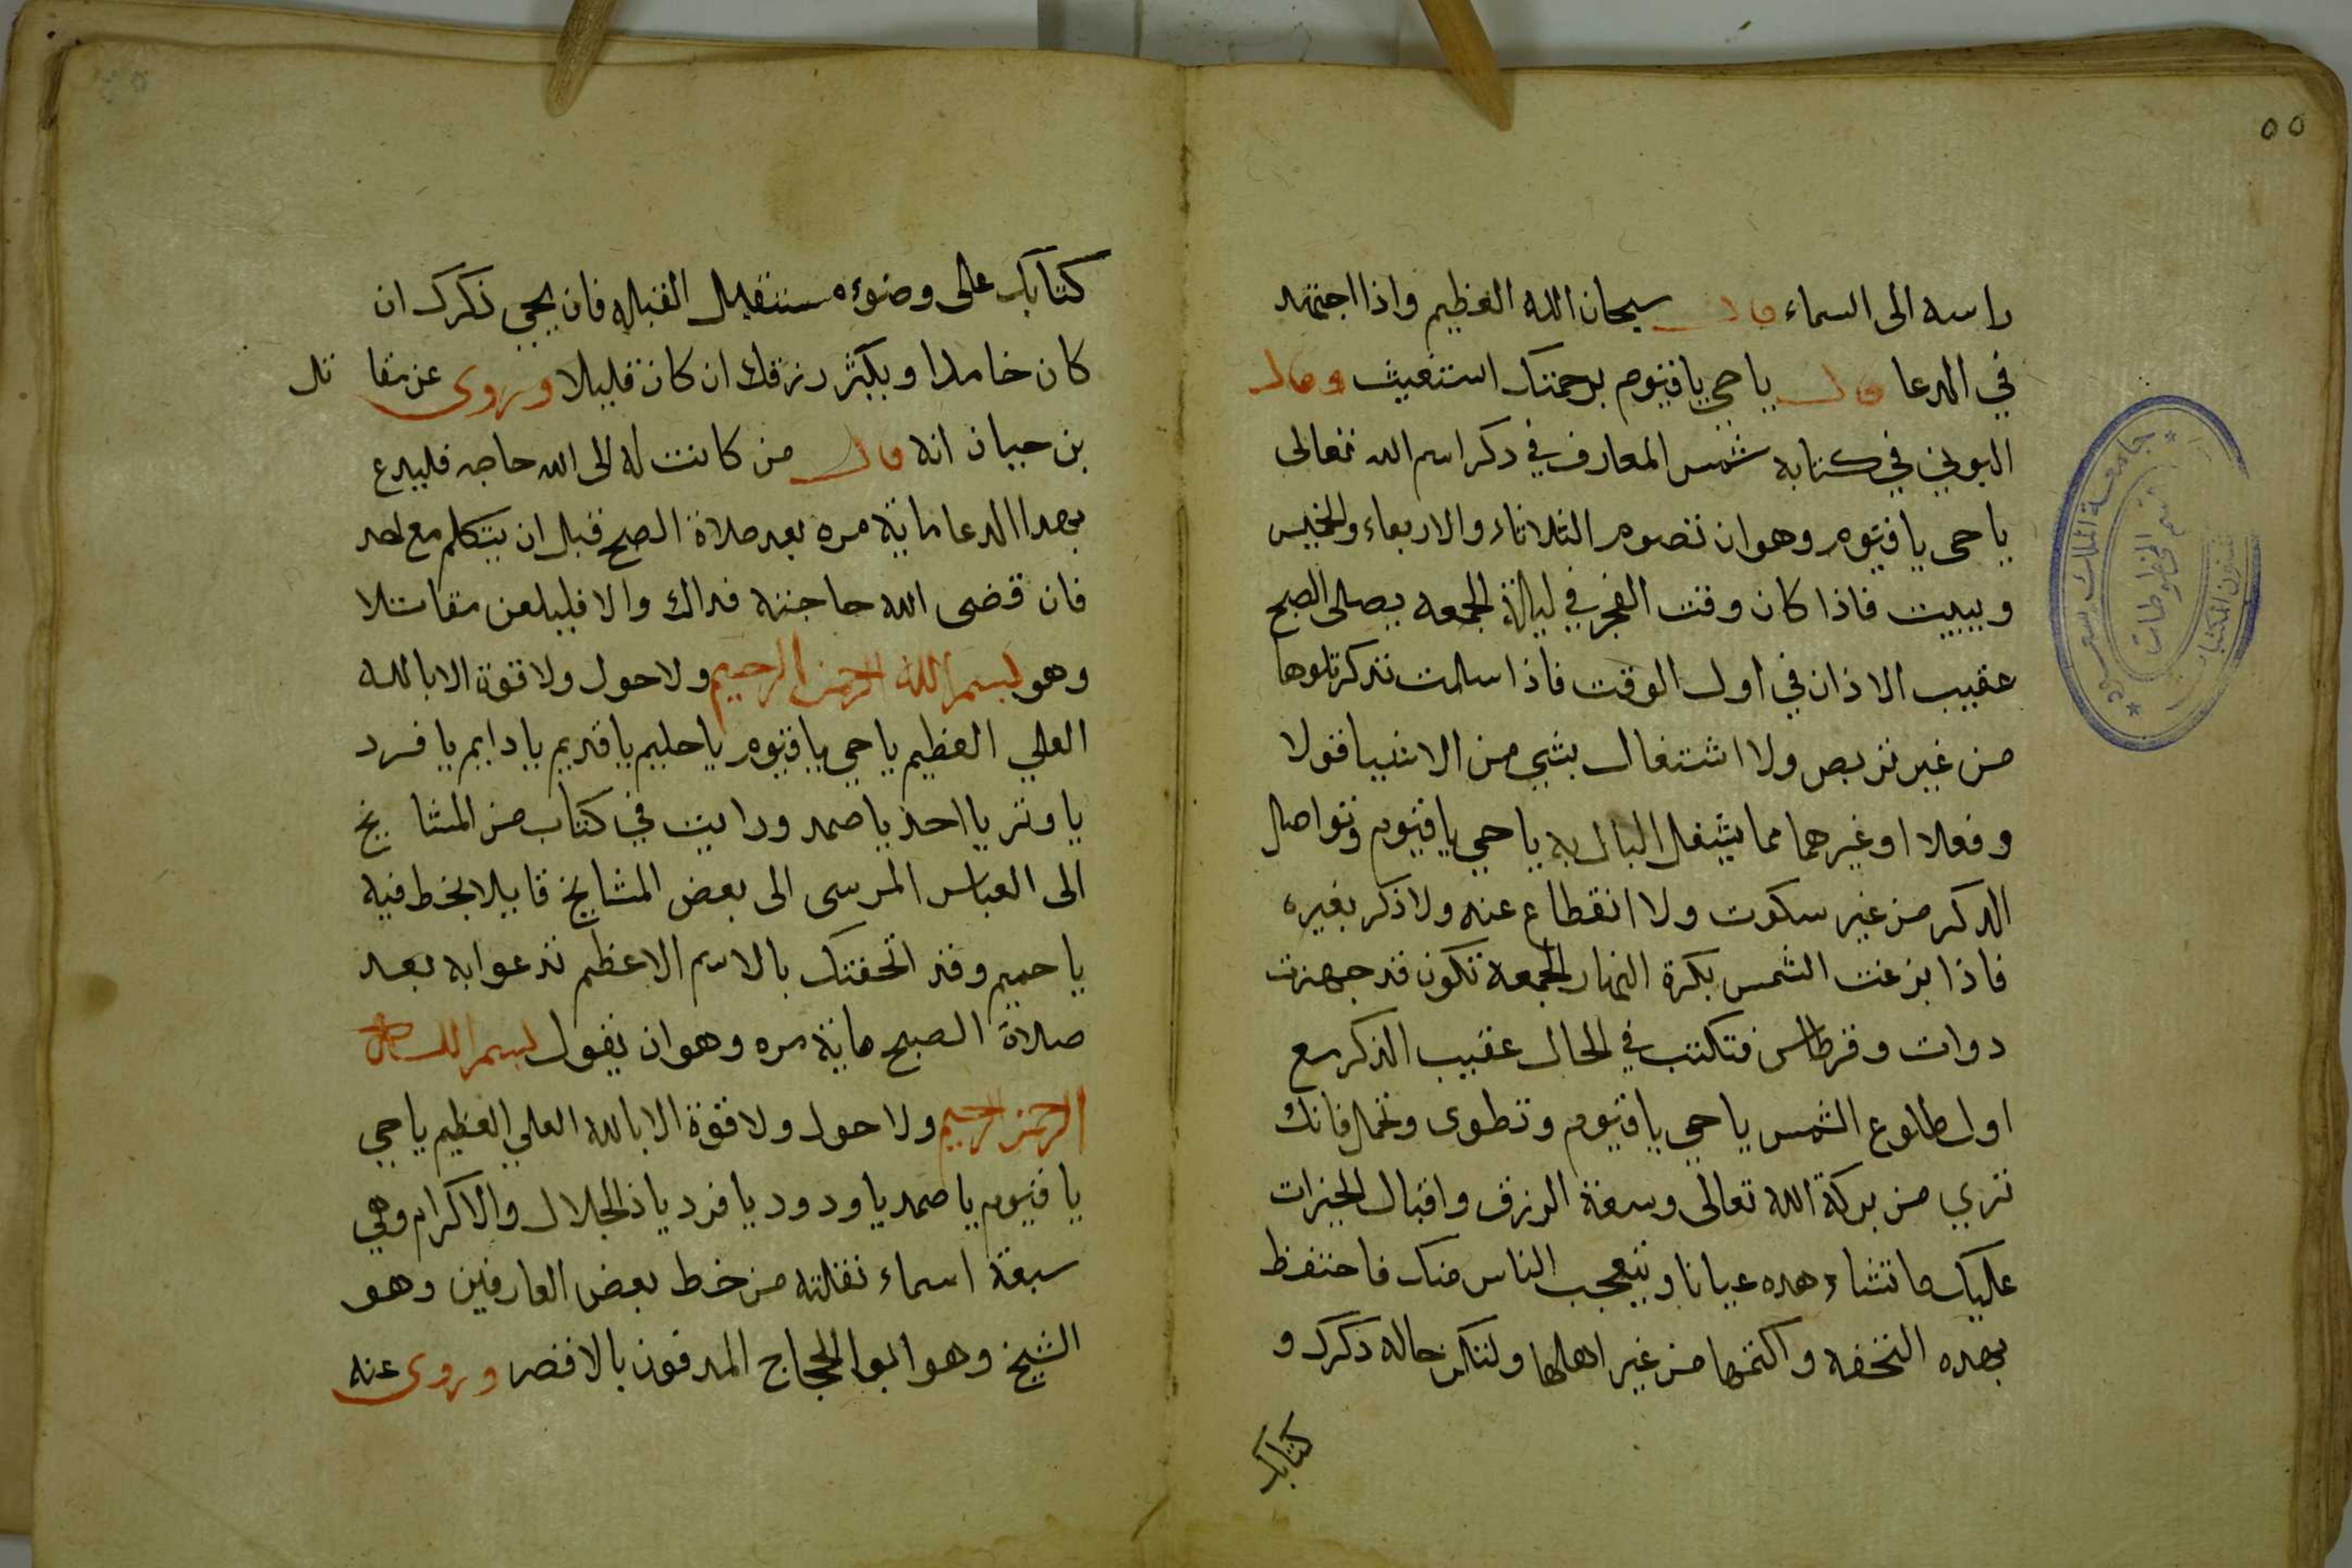 ٥٥
راسه الى السماء قال سبحان الله العظيم واذا اجتهد
في الدعا قال يا حي يا قيوم برحمتك استغيث وقال
البوني في كتابه شمس المعارف في ذكر اسم الله تعالى
يا حي يا قيوم وهو ان تصوم الثلاثاء والاربعاء والخميس
ويبيت فاذا كان وقت الفجر في ليلة الجمعه يصلى الصبح
عقيب الاذان في اول الوقت فاذا سلمت تذكر تلوها
من غير تربص ولا اشتغال بشي من الاشيا قولا
وفعلا او غيرهما مما يشغل البال به يا حي يا قيوم وتواصل
الذكر من غير سكوت ولا انقطاع عنه ولا ذكر بغيره
فاذا بزغت الشمس بكرة النهار الجمعة تكون قد جهزت
دوات وقرطاس فتكتب في الحال عقيب الذكر مع
اول طلوع الشمس يا حي يا قيوم وتطوى وتحمل فانك
تري من بركة الله تعالى وسعة الرزق واقبال الخيرات
عليك ما تشاهده عيانا ويتعجب الناس منك فاحتفظ
بهده التحفه واكتمها من غير اهلها ولتكن حاله ذكرك و
كتابك
جامعة الملك سعود
قسم المخطوطات
شئون المكتبات
كتابك على وضوء مستقبل القبله فان يحي ذكرك ان
كان خاملا ويكثر رزقك ان كان قليلا وروى عن مقا تل
بن حيان انه قال من كانت له الى الله حاجه فليدع
بهدا الدعا ماية مره بعد صلاة الصبح قبل ان يتكلم مع احد
فان قضى الله حاجته فداك والا فليلعن مقاتلا
وهو بسم الله الرحمن الرحيم ولا حول ولا قوة الا بالله
العلي العظيم يا حي يا قيوم يا حليم يا قديم يا دايم يا فرد
يا وتر يا احد يا صمد ورايت في كتاب من المشا يخ
الى العباس المرسى الى بعض المشايخ قايلا بخط فيه
يا حميم وقد اتحفتك بالاسم الاعظم تدعوا به بعد
صلاة الصبح ماية مره وهو ان تقول بسم الله
الرحمن الرحيم ولا حول ولا قوة الا بالله العلي العظيم يا حي
يا قيوم يا صمد يا ودود يا فرد يا ذ الجلال والاكرام وهي
سبعة اسماء نقلته من خط بعض العارفين وهو
الشيخ وهو ابو الحجاج المدفون بالاقصر وروى عنه